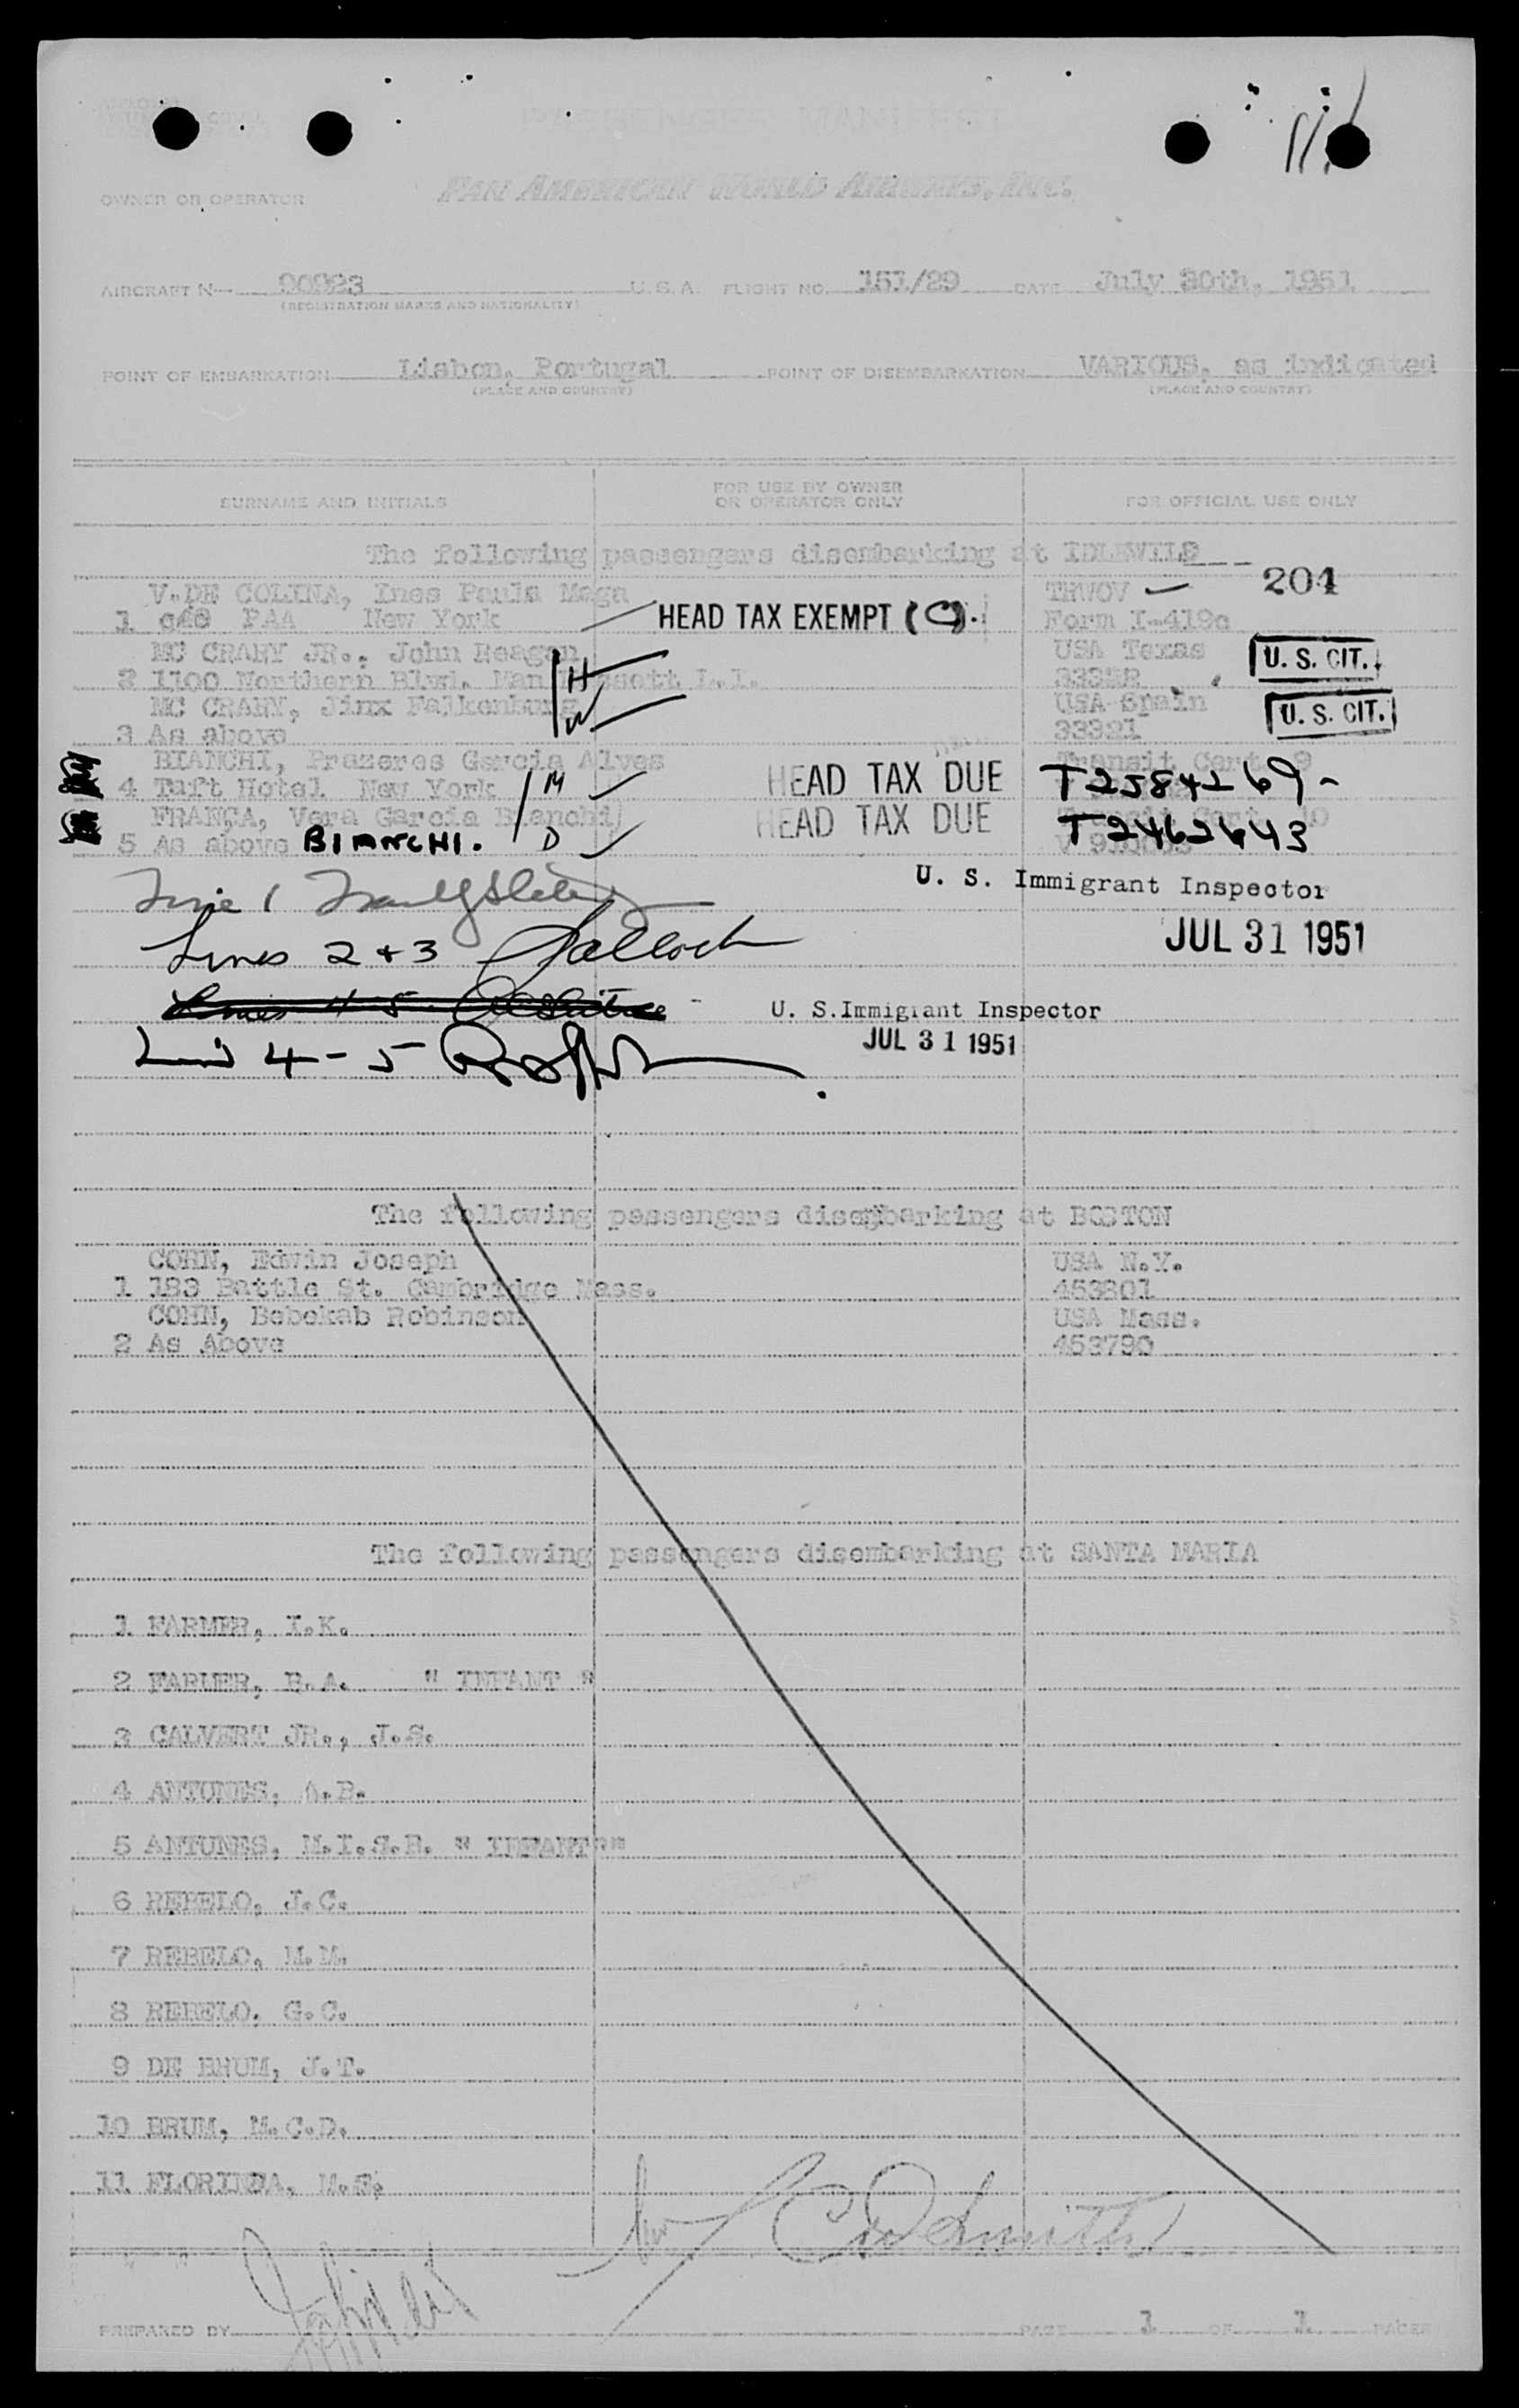 PASSENGER MANIFEST
OWNER OR OPERATOR PAN AMERICAN WORLD AIRWAYS, INC.
AIRCRAFT N— 90923 U.S.A. FLIGHT NO. 151/29 DATE July 30th, 1951
(REGISTRATION MARKS AND NATIONALITY)
POINT OF EMBARKATION Lisbon, Portugal POINT OF DISEMBARKATION VARIOUS, as indicated
(PLACE AND COUNTRY) (PLACE AND COUNTRY)
SURNAME AND INITIALS FOR USE BY OWNER OR OPERATOR ONLY FOR OFFICIAL USE ONLY
The following passengers disembarking at IDLEWILD
V.DE COLINA, Ines Paula Maga TRWOV 204
1 c/o PAA New York HEAD TAX EXEMPT (C). Form I-419c
MC CRARY JR., John Reagan USA Texas U. S. CIT.
2 1100 Northern Blvd. Manhassett L.I. H
MC CRARY, Jinx Falkenburg W USA Spain U. S. CIT.
3 As above 33321
BIANCHI, Prazeres Garcia Alves Transit Cert 9
4 Taft Hotel New York M HEAD TAX DUE T2584269-
FRANÇA, Vera Garcia Bianchi HEAD TAX DUE
5 As above BIANCHI. D T2462643
Line 1 U. S. Immigrant Inspector
Lines 2 + 3 JUL 31 1951
U. S. Immigrant Inspector
4 - 5 JUL 31 1951
The following passengers disembarking at BOSTON
COHN, Edwin Joseph USA N.Y.
1 183 Battle St. Cambridge Mass. 453801
COHN, Bebekab Robinson USA Mass.
2 As Above 453790
The following passengers disembarking at SANTA MARIA
1 FARMER, I.K.
2 FARMER, B.A. " INFANT "
3 CALVERT JR., J.S.
4 ANTUNES, A.B.
5 ANTUNES, M.I.S.B. " INFANT "
6 REBELO, J.C.
7 REBELO, M.M.
8 REBELO, G.C.
9 DE BRUM, J.T.
10 BRUM, M.C.D.
11 FLORINDA, M.S.
PREPARED BY PAGE 1 OF 1 PAGES